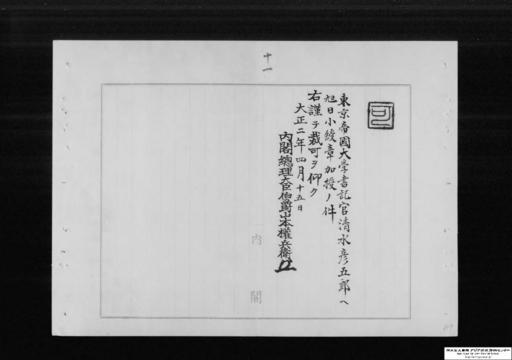 十一
可
東京帝國大學書記官清水彦五郎ヘ
旭日小綬章加授ノ件
右謹テ裁可ヲ仰ク
大正二年四月十五日
内閣總理大臣伯爵山本權兵衞
内閣